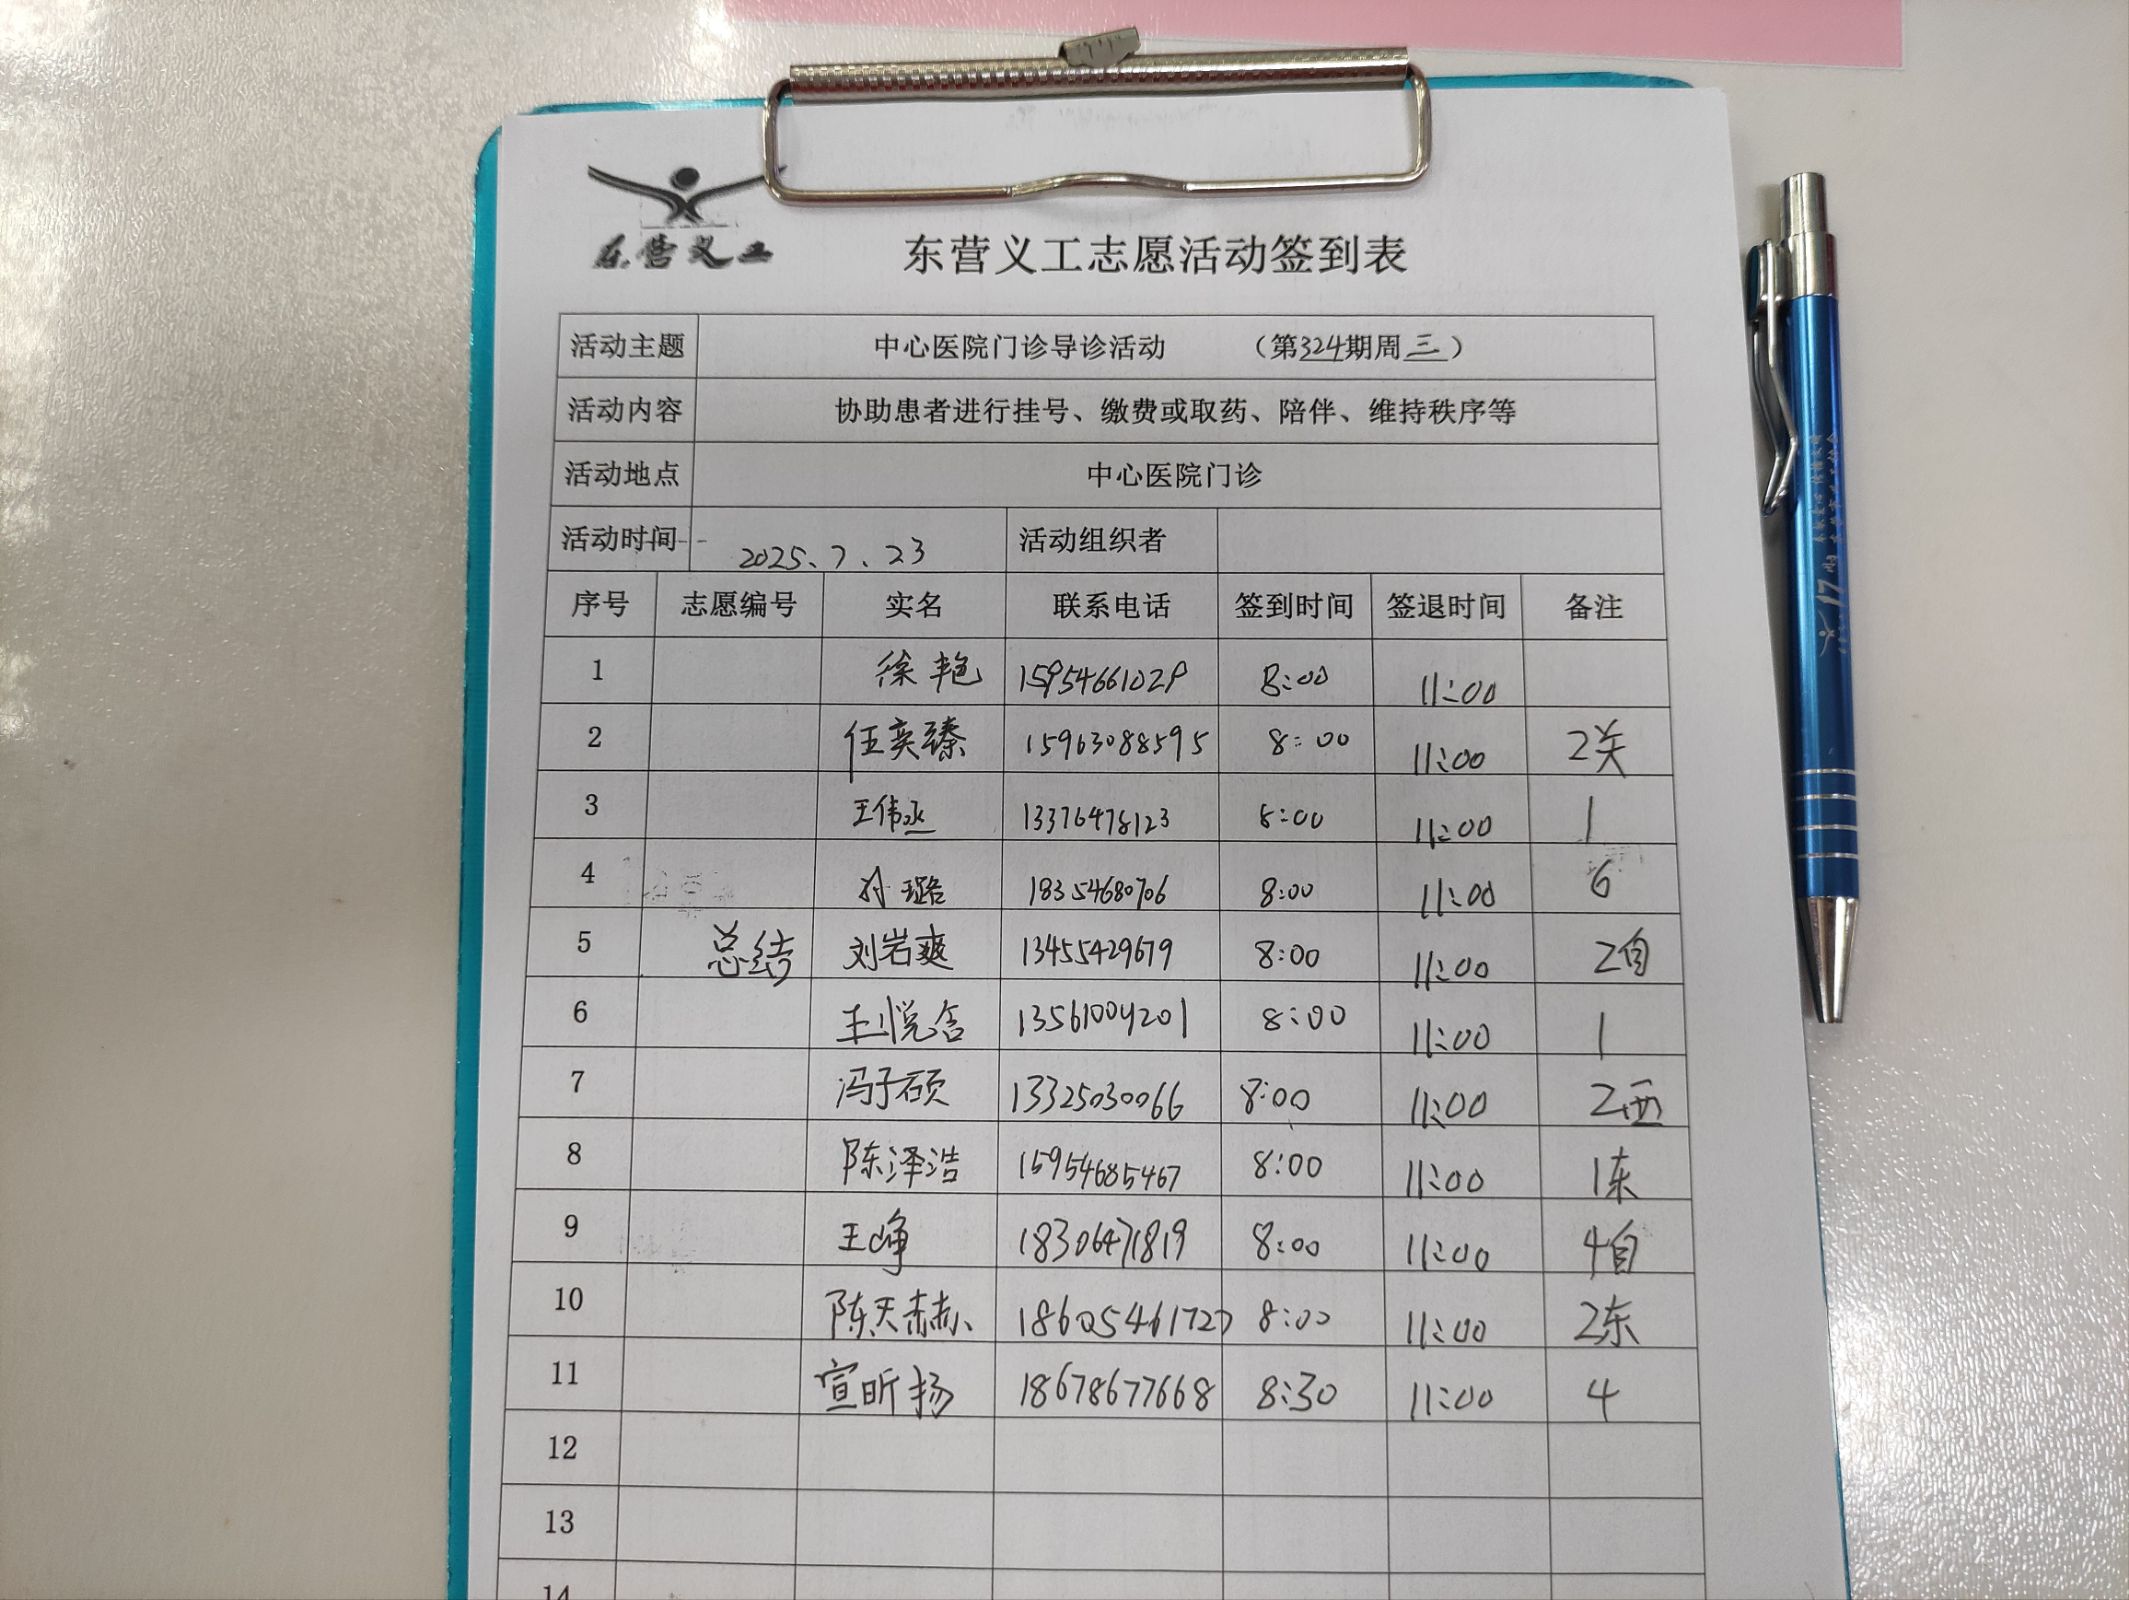 东营义工
东营义工志愿活动签到表
活动主题 中心医院门诊导诊活动 （第324期周三）
活动内容 协助患者进行挂号、缴费或取药、陪伴、维持秩序等
活动地点 中心医院门诊
活动时间 2025.7.23 活动组织者
序号 志愿编号 实名 联系电话 签到时间 签退时间 备注
1 徐艳 15954661029 8:00 11:00
2 任奕臻 15963088595 8:00 11:00 2关
3 王伟丞 13376478123 8:00 11:00 1
4 孙璐 18354680706 8:00 11:00 6
5 总结 刘岩爽 13455429679 8:00 11:00 2自
6 王悦含 13561004201 8:00 11:00 1
7 冯子硕 13325030066 8:00 11:00 2西
8 陈泽浩 15954685467 8:00 11:00 1东
9 王峥 18306471819 8:00 11:00 4自
10 陈天赫 18605461727 8:00 11:00 2东
11 宣昕扬 18678677668 8:30 11:00 4
12
13
14
17